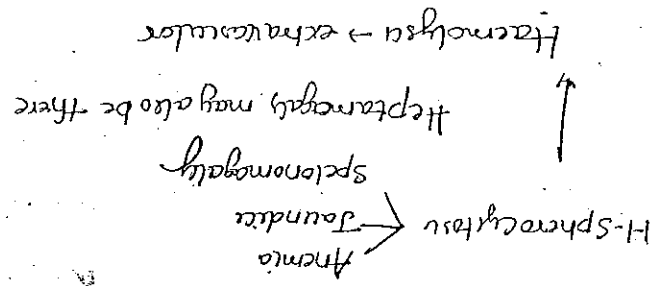 Anemia
H-Spherocytosis Jaundice
Splenomegaly
Heptamegaly may also be there
Haemolysis → extravascular